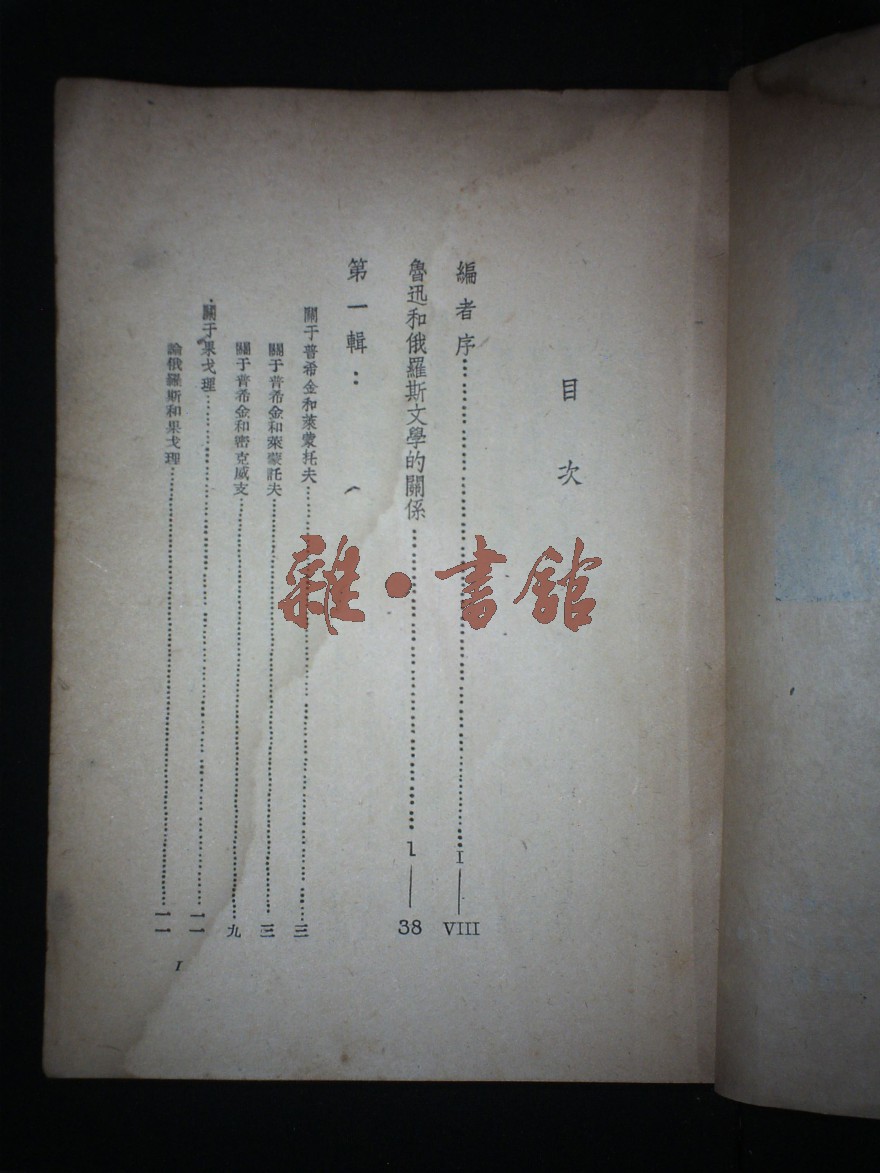 目次
編者序……I——VIII
魯迅和俄羅斯文學的關係……1——38
第一輯：
關于普希金和萊蒙托夫……三
關于普希金和萊蒙託夫……三
關于普希金和密克威支……九
關于果戈理……一一
論俄羅斯和果戈理……一一
I
雜·書館